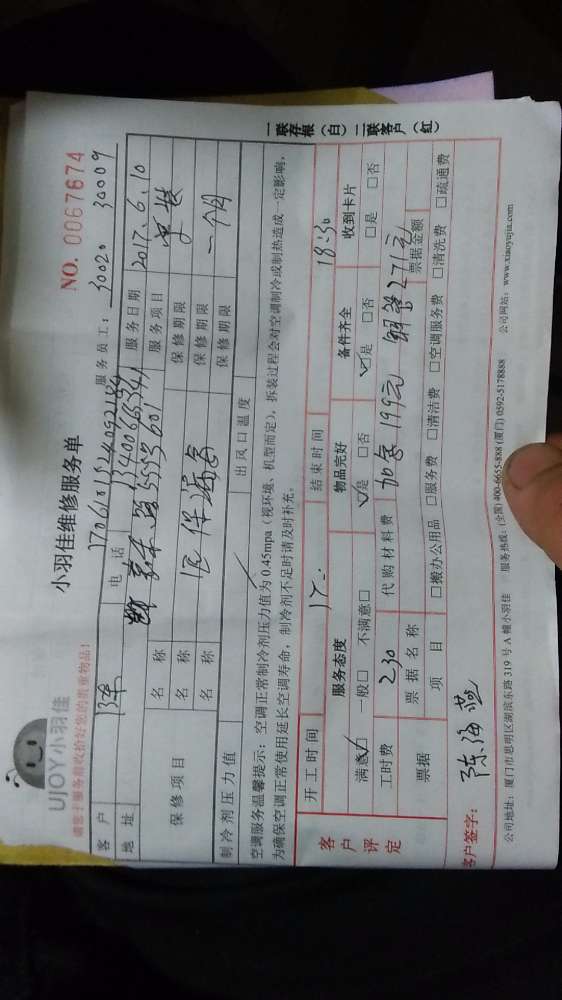 UJOY小羽佳
小羽佳维修服务单
NO. 0067674
请您于服务前收拾好您的贵重物品!
服务员工: 30020 30009
客户 陈 电话
地址 服务日期 2017.6.10
保修项目 名称 服务项目
名称 保修期限
名称 保修期限 一个月
制冷剂压力值 出风口温度 保修期限
空调服务温馨提示: 空调正常制冷剂压力值为0.45mpa (视环境、机型而定), 拆装过程会对空调制冷或制热造成一定影响,
为确保空调正常使用延长空调寿命, 制冷剂不足时请及时补充。
开工时间 17. 结束时间 18:30
客户评定 服务态度 物品完好 备件齐全 收到卡片
满意☑ 一般□ 不满意□ ☑是 □否 ☑是 □否 □是 □否
工时费 230 代购材料费 199元
票据 票据名称 票据金额
项目 □搬办公用品 □服务费 □清洁费 □空调服务费 □清洗费 □疏通费
客户签字: 陈海燕
公司地址: 厦门市思明区湖滨东路319号A幢小羽佳 服务热线: (全国)400-6655-888 (厦门) 0592-5178888 公司网站: www.xiaoyujia.com
一联存根 (白) 二联客户 (红)